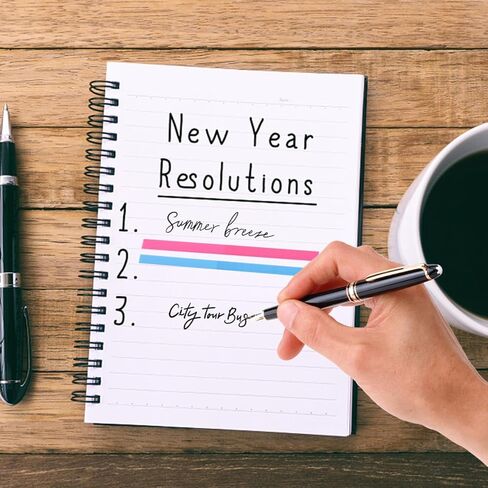 New Year
Resolutions
1. Summer breeze
2.
3. City Tour Bus